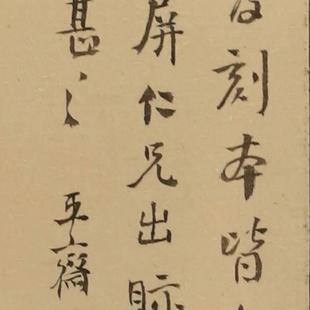 刻本皆
屏仁兄出眎
甚〻
平齋